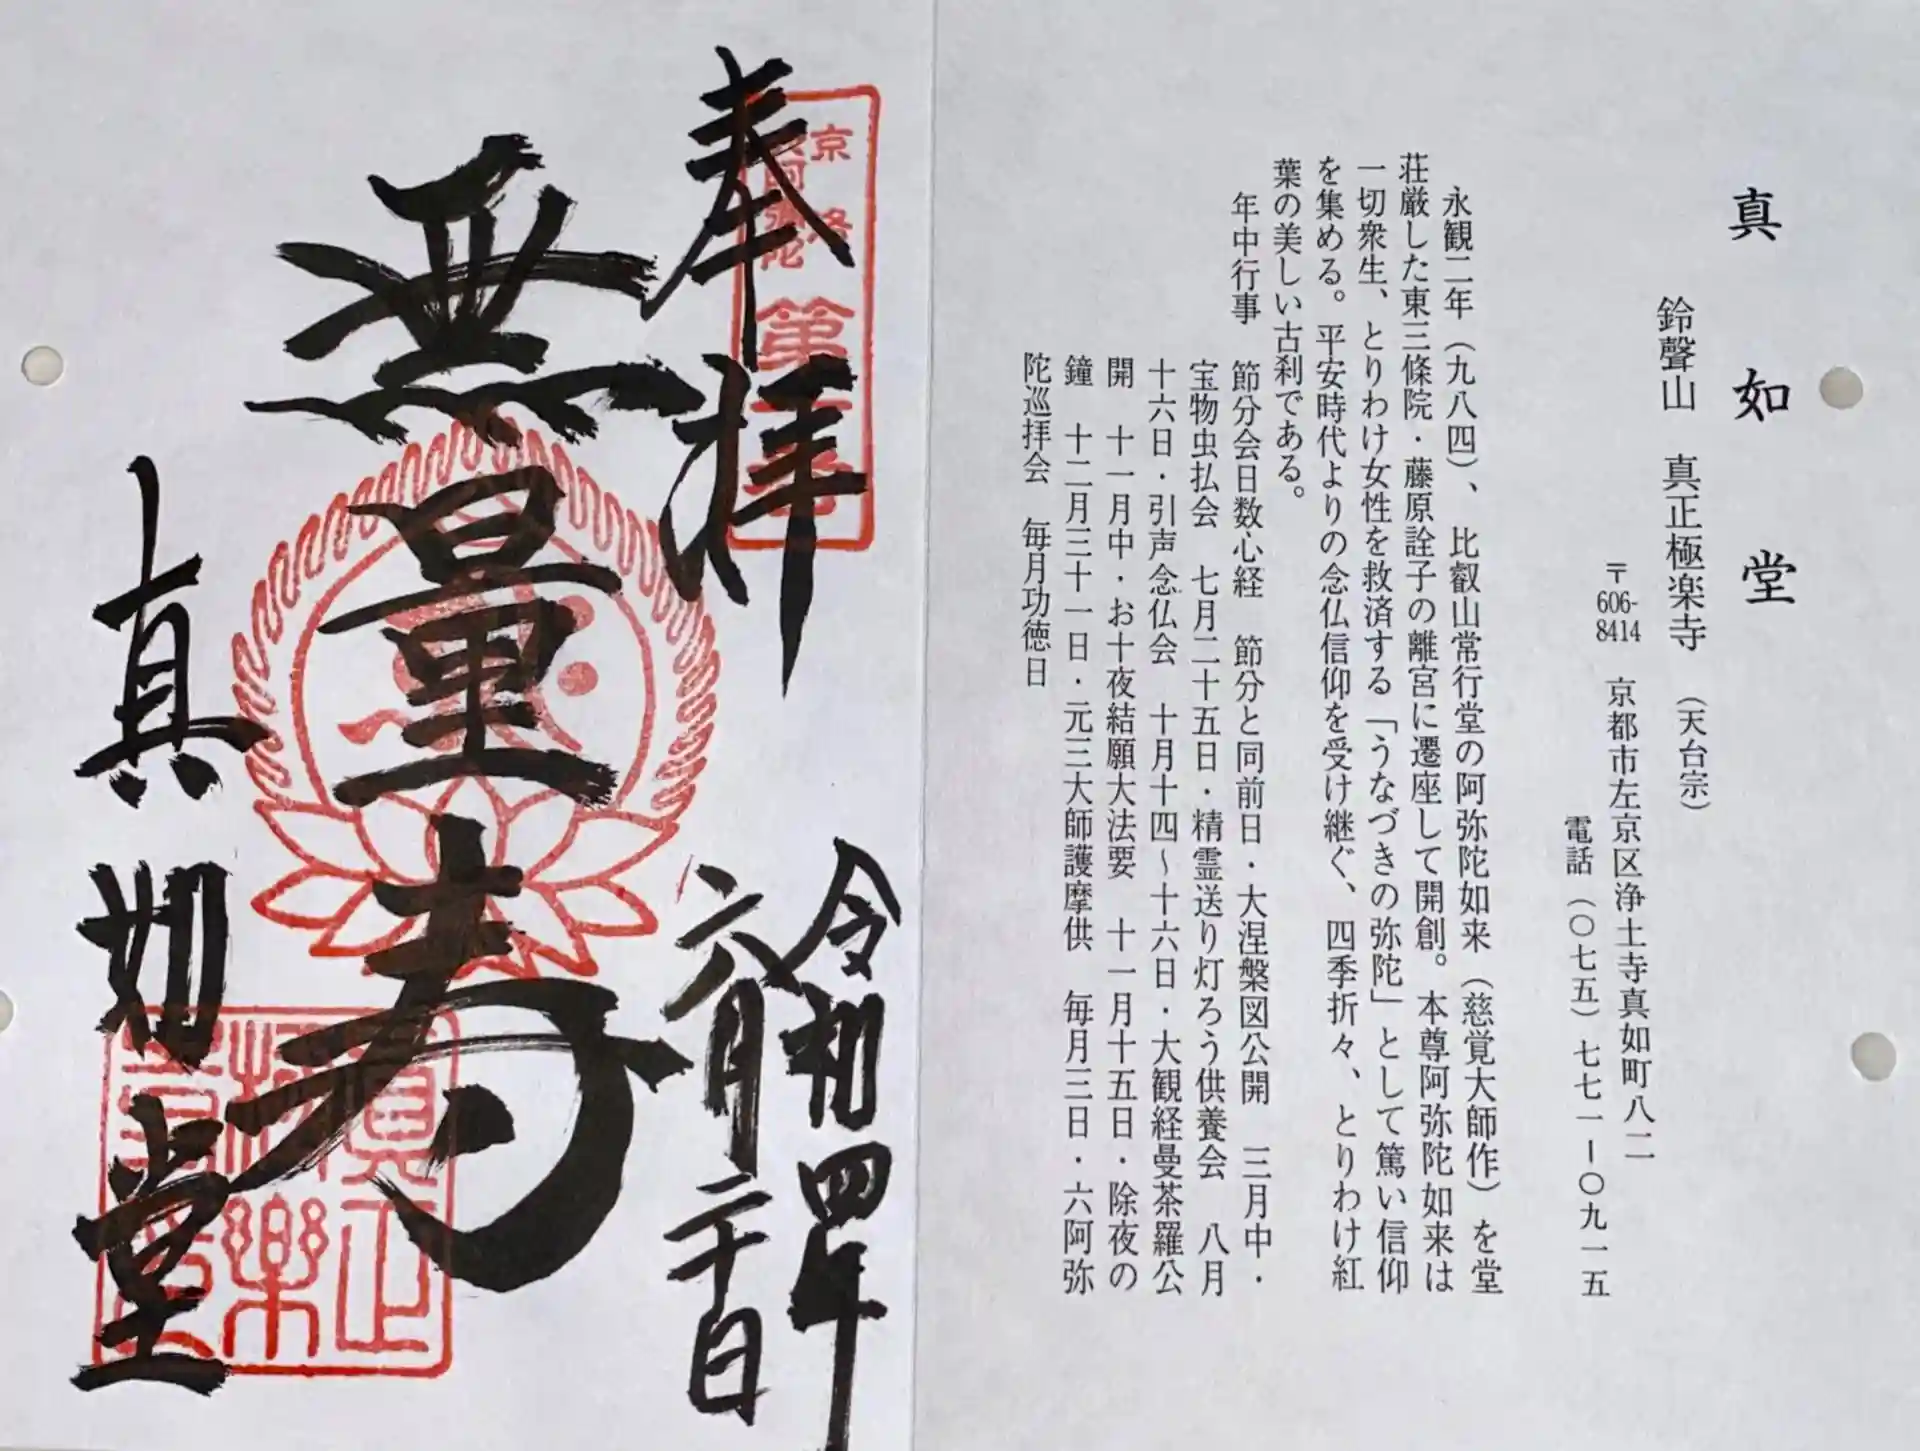 真如堂
鈴聲山 真正極楽寺 (天台宗)
〒606-8414 京都市左京区浄土寺真如町八二
電話(〇七五)七七一ー〇九一五
永観二年(九八四)、比叡山常行堂の阿弥陀如来(慈覚大師作)を堂
荘厳した東三條院・藤原詮子の離宮に遷座して開創。本尊阿弥陀如来は
一切衆生、とりわけ女性を救済する「うなづきの弥陀」として篤い信仰
を集める。平安時代よりの念仏信仰を受け継ぐ、四季折々、とりわけ紅
葉の美しい古刹である。
年中行事 節分会日数心経 節分と同前日・大涅槃図公開 三月中・
宝物虫払会 七月二十五日・精霊送り灯ろう供養会 八月
十六日・引声念仏会 十月十四～十六日・大観経曼茶羅公
開 十一月中・お十夜結願大法要 十一月十五日・除夜の
鐘 十二月三十一日・元三大師護摩供 毎月三日・六阿弥
陀巡拝会 毎月功徳日
奉拝
京洛
阿弥陀
第
令和四年
六月二十日
無量寿
真如堂
真正
極樂